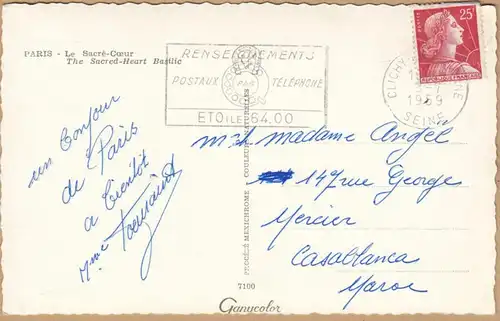 PARIS - Le Sacré-Cœur
The Sacred-Heart Basilic
RENSEIGNEMENTS
POSTAUX TÉLÉPHONE
ETOILE 64.00
25F
POSTES
REPUBLIQUE FRANÇAISE
CLICHY
1959
SEINE
un Bonjour
de Paris
a bientôt
Mme Toussaint
PROCÉDÉ MEXICHROME COULEURS NATURELLES
mr madame Angel
147 rue George
Mercier
Casablanca
Maroc
7100
Ganycolor